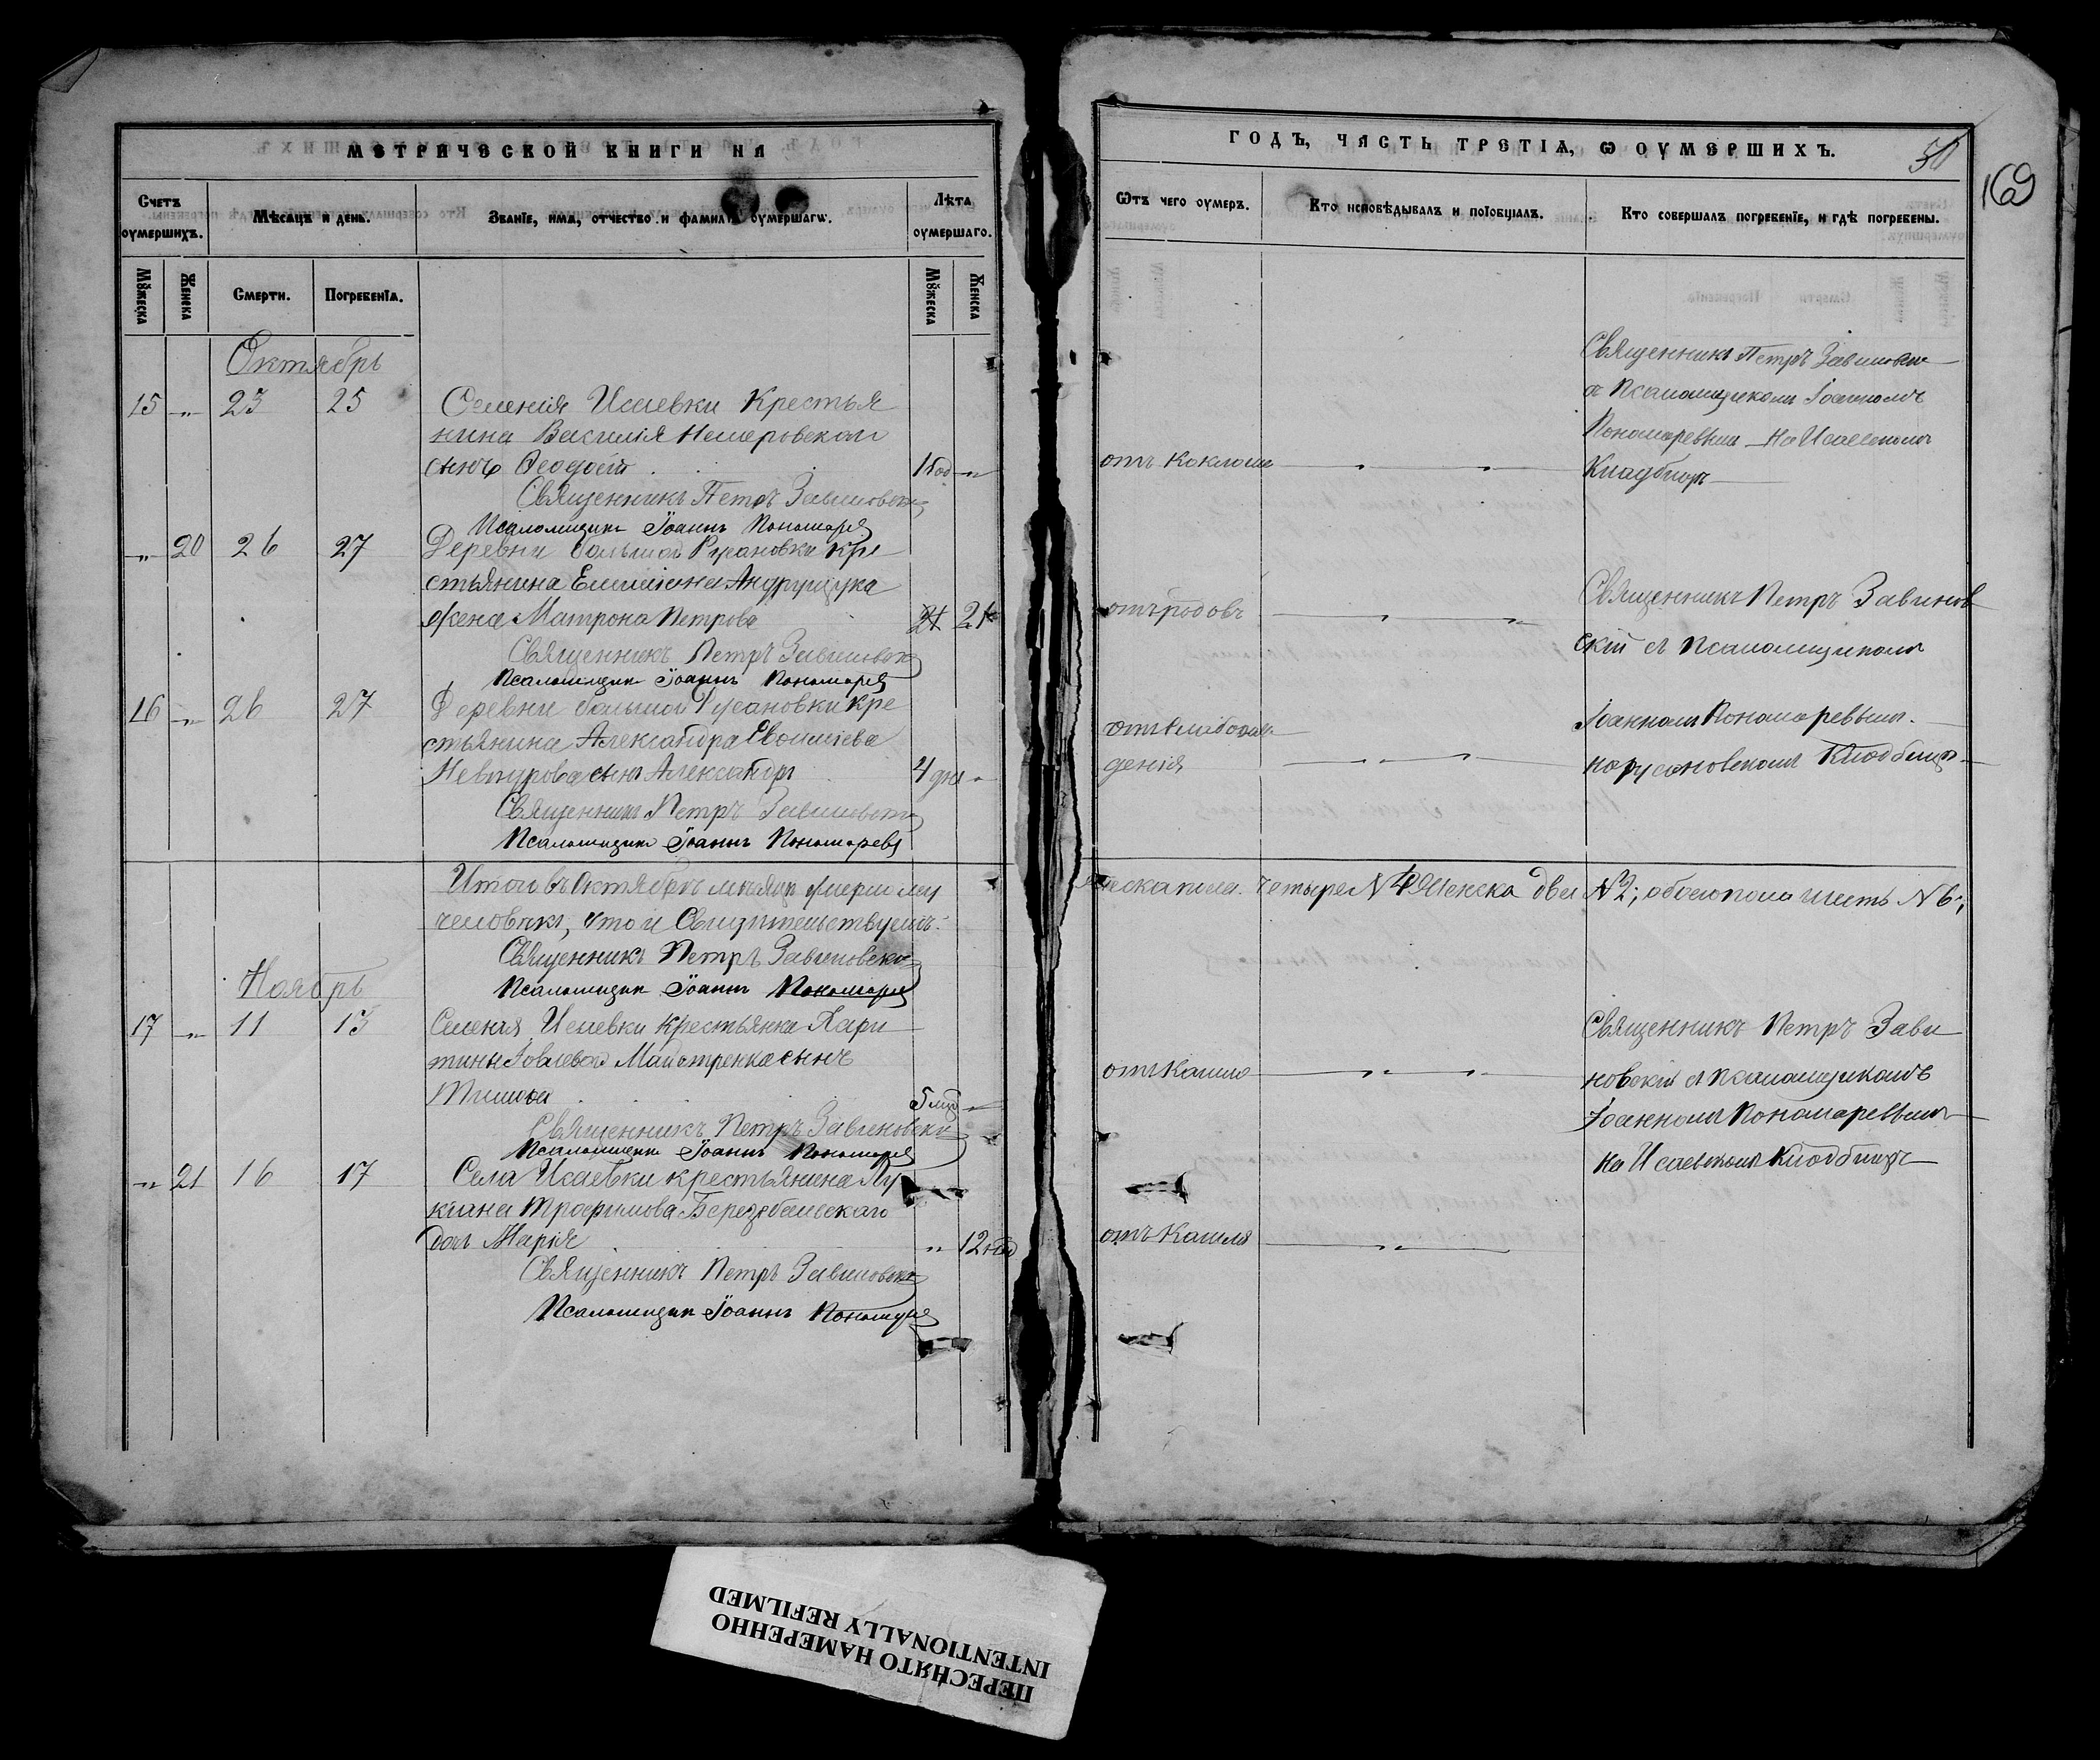 МЕТРИЧЕСКОЙ КНИГИ НА
Счетъ оумершихъ.
Мѣсяцъ и день.
Званїе, имѧ, отчество и фамилїѧ оумершагѡ.
Лѣта оумершаго.
Мꙋжеска
Женска
Смерти.
Погребенїѧ.
Мꙋжеска
Женска
Октябрь
15 " 23 25 Селенія Исаевки Крестья
нина Василія Немеровскаго
сынъ Ѳеодосій 1 год "
Священникъ Петръ Завиновскій
Псаломщикъ Іоаннъ Пономаревъ
" 20 26 27 Деревни большой Русановки кре
стьянина Емилiана Андрущука
жена Матрона Петрова 21 21
Священникъ Петръ Завиновскій
Псаломщикъ Іоаннъ Пономаревъ
16 " 26 27 Деревни большой Русановки кре
стьянина Александра
сынъ Александръ 4 дня "
Священникъ Петръ Завиновскій
Псаломщикъ Іоаннъ Пономаревъ
Итого въ Октябрѣ мѣсяцѣ умерло му
человѣкъ, что и Свидѣтельствуемъ.
Священникъ Петръ Завиновскій
Псаломщикъ Іоаннъ Пономаревъ
Ноябрь
17 " 11 13 Селенія Исаевки крестьянки Хари
тины Іовлевой Майстренка сынъ
5 "
Священникъ Петръ Завиновскій
Псаломщикъ Іоаннъ Пономаревъ
" 21 16 17 Села Исаевки крестьянина Лу
кіана Трофимова Березовскаго
дочь Марія " 12 нед
Священникъ Петръ Завиновскій
Псаломщикъ Іоаннъ Пономаревъ
ГОДЪ, ЧАСТЬ ТРЕТІѦ, Ѡ ОУМЕРШИХЪ.
50
169
Ѿтъ чего оумеръ.
Кто исповѣдывалъ и пріобщалъ.
Кто совершалъ погребенїе, и гдѣ погребены.
Священникъ Петръ Завиновскій
съ Псаломщикомъ Іоанномъ
Пономаревымъ На Исаевскомъ
отъ коклюша " " Кладбищѣ
Священникъ Петръ Завинов
отъ родовъ " "
скій съ Псаломщикомъ
Іоанномъ Пономаревымъ
отъ слаборож
денія " " на русановскомъ Кладбищѣ
жеска пола четыре N 4 Женска два N 2; обоего пола шесть N 6;
Священникъ Петръ Зави
отъ Кашля " " новскій съ Псаломщикомъ
Іоанномъ Пономаревымъ
на Исаевскомъ Кладбищѣ
отъ Кашля "
ПЕРЕСНЯТО НАМЕРЕННО
INTENTIONALLY REFILMED